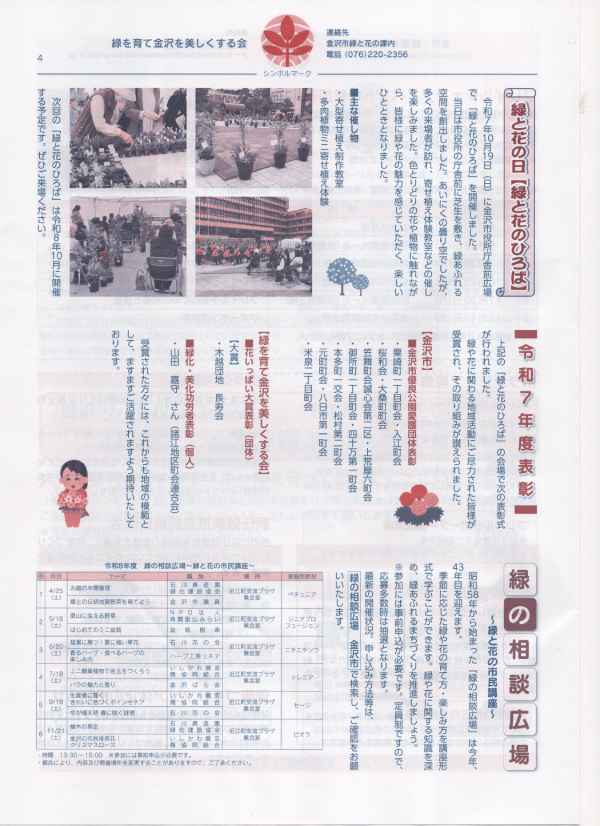 緑を育て金沢を美しくする会
シンボルマーク
連絡先
金沢市緑と花の課内
電話 (076)220-2356
4
緑と花の日【緑と花のひろば】
令和7年10月19日(日)に金沢市役所庁舎前広場
で、「緑と花のひろば」を開催しました。
当日は市役所の庁舎前に芝生を敷き、緑あふれる
空間を創出しました。あいにくの曇り空でしたが、
多くの来場者が訪れ、寄せ植え体験教室などの催し
を楽しみました。色とりどりの花や植物に触れなが
ら、皆様に緑や花の魅力を感じていただく、楽しい
ひとときとなりました。
■主な催し物
・大型寄せ植え制作教室
・多肉植物ミニ寄せ植え体験
次回の「緑と花のひろば」は令和8年10月に開催
する予定です。ぜひご来場ください。
令和7年度表彰
上記の「緑と花のひろば」の会場で次の表彰式
が行われました。
緑や花に関わる地域活動にご尽力された皆様が
受賞され、その取り組みが讃えられました。
【金沢市】
■金沢市優良公園愛護団体表彰
・粟崎町一丁目町会・入江町会
・桜和会・大桑町町会
・笠舞町会誠心会第二区・上荒屋六町会
・御所町一丁目町会・四十万第一町会
・本多町一交会・松村第二町会
・元町町会・八日市第一町会
・米泉二丁目町会
【緑を育て金沢を美しくする会】
■花いっぱい大賞表彰(団体)
【大賞】
・木越団地 長寿会
■緑化・美化功労者表彰(個人)
・山田 嘉守 さん(諸江地区町会連合会)
受賞された方々には、これからも地域の模範と
して、ますますご活躍されますよう期待いたして
おります。
緑の相談広場
~緑と花の市民講座~
昭和58年から始まった「緑の相談広場」は今年、
43年目を迎えます。
季節に応じた緑や花の育て方・楽しみ方を講座形
式で学ぶことができます。緑や花に関する知識を深
め、緑あふれるまちづくりを推進しましょう。
※参加には事前申込が必要です。定員制ですので、
応募多数時は抽選となります。
最新の開催状況、申し込み方法等は、
「緑の相談広場 金沢市」で検索し、ご確認をお願
いいたします。
令和8年度 緑の相談広場~緑と花の市民講座~
回 月日 テーマ 講師 場所
1 4/25(土) お庭の年間管理 石川県造園緑化建設協会 近江町交流プラザ集会室 ペチュニア
緑との伝統加賀野菜を育てよう 金沢市職員
2 5/16(土) 里山に生える野草 近江町交流プラザ集会室
はじめてのうこ盆栽
3 6/20(土) 石川花の会 近江町交流プラザ集会室 ニチニチソウ
香るハーブ・食べるハーブの楽しみ方 ハーブ工房リネア
4 7/18(土) ミニ観葉植物で苔玉をつくろう 近江町交流プラザ集会室 トレニア
バラの魅力と香り 金沢ばら会
5 9/19(土) きれいに色づくポインセチア 近江町交流プラザ集会室 セージ
石川花の会
6 11/21(土) 植木の剪定 石川県造園緑化建設協会 近江町交流プラザ集会室 ビオラ
クリスマスローズ
・時間 13:30~15:00 ※参加には事前申込が必要です。
・都合により、内容及び開催場所を変更することがありますので、ご了承ください。